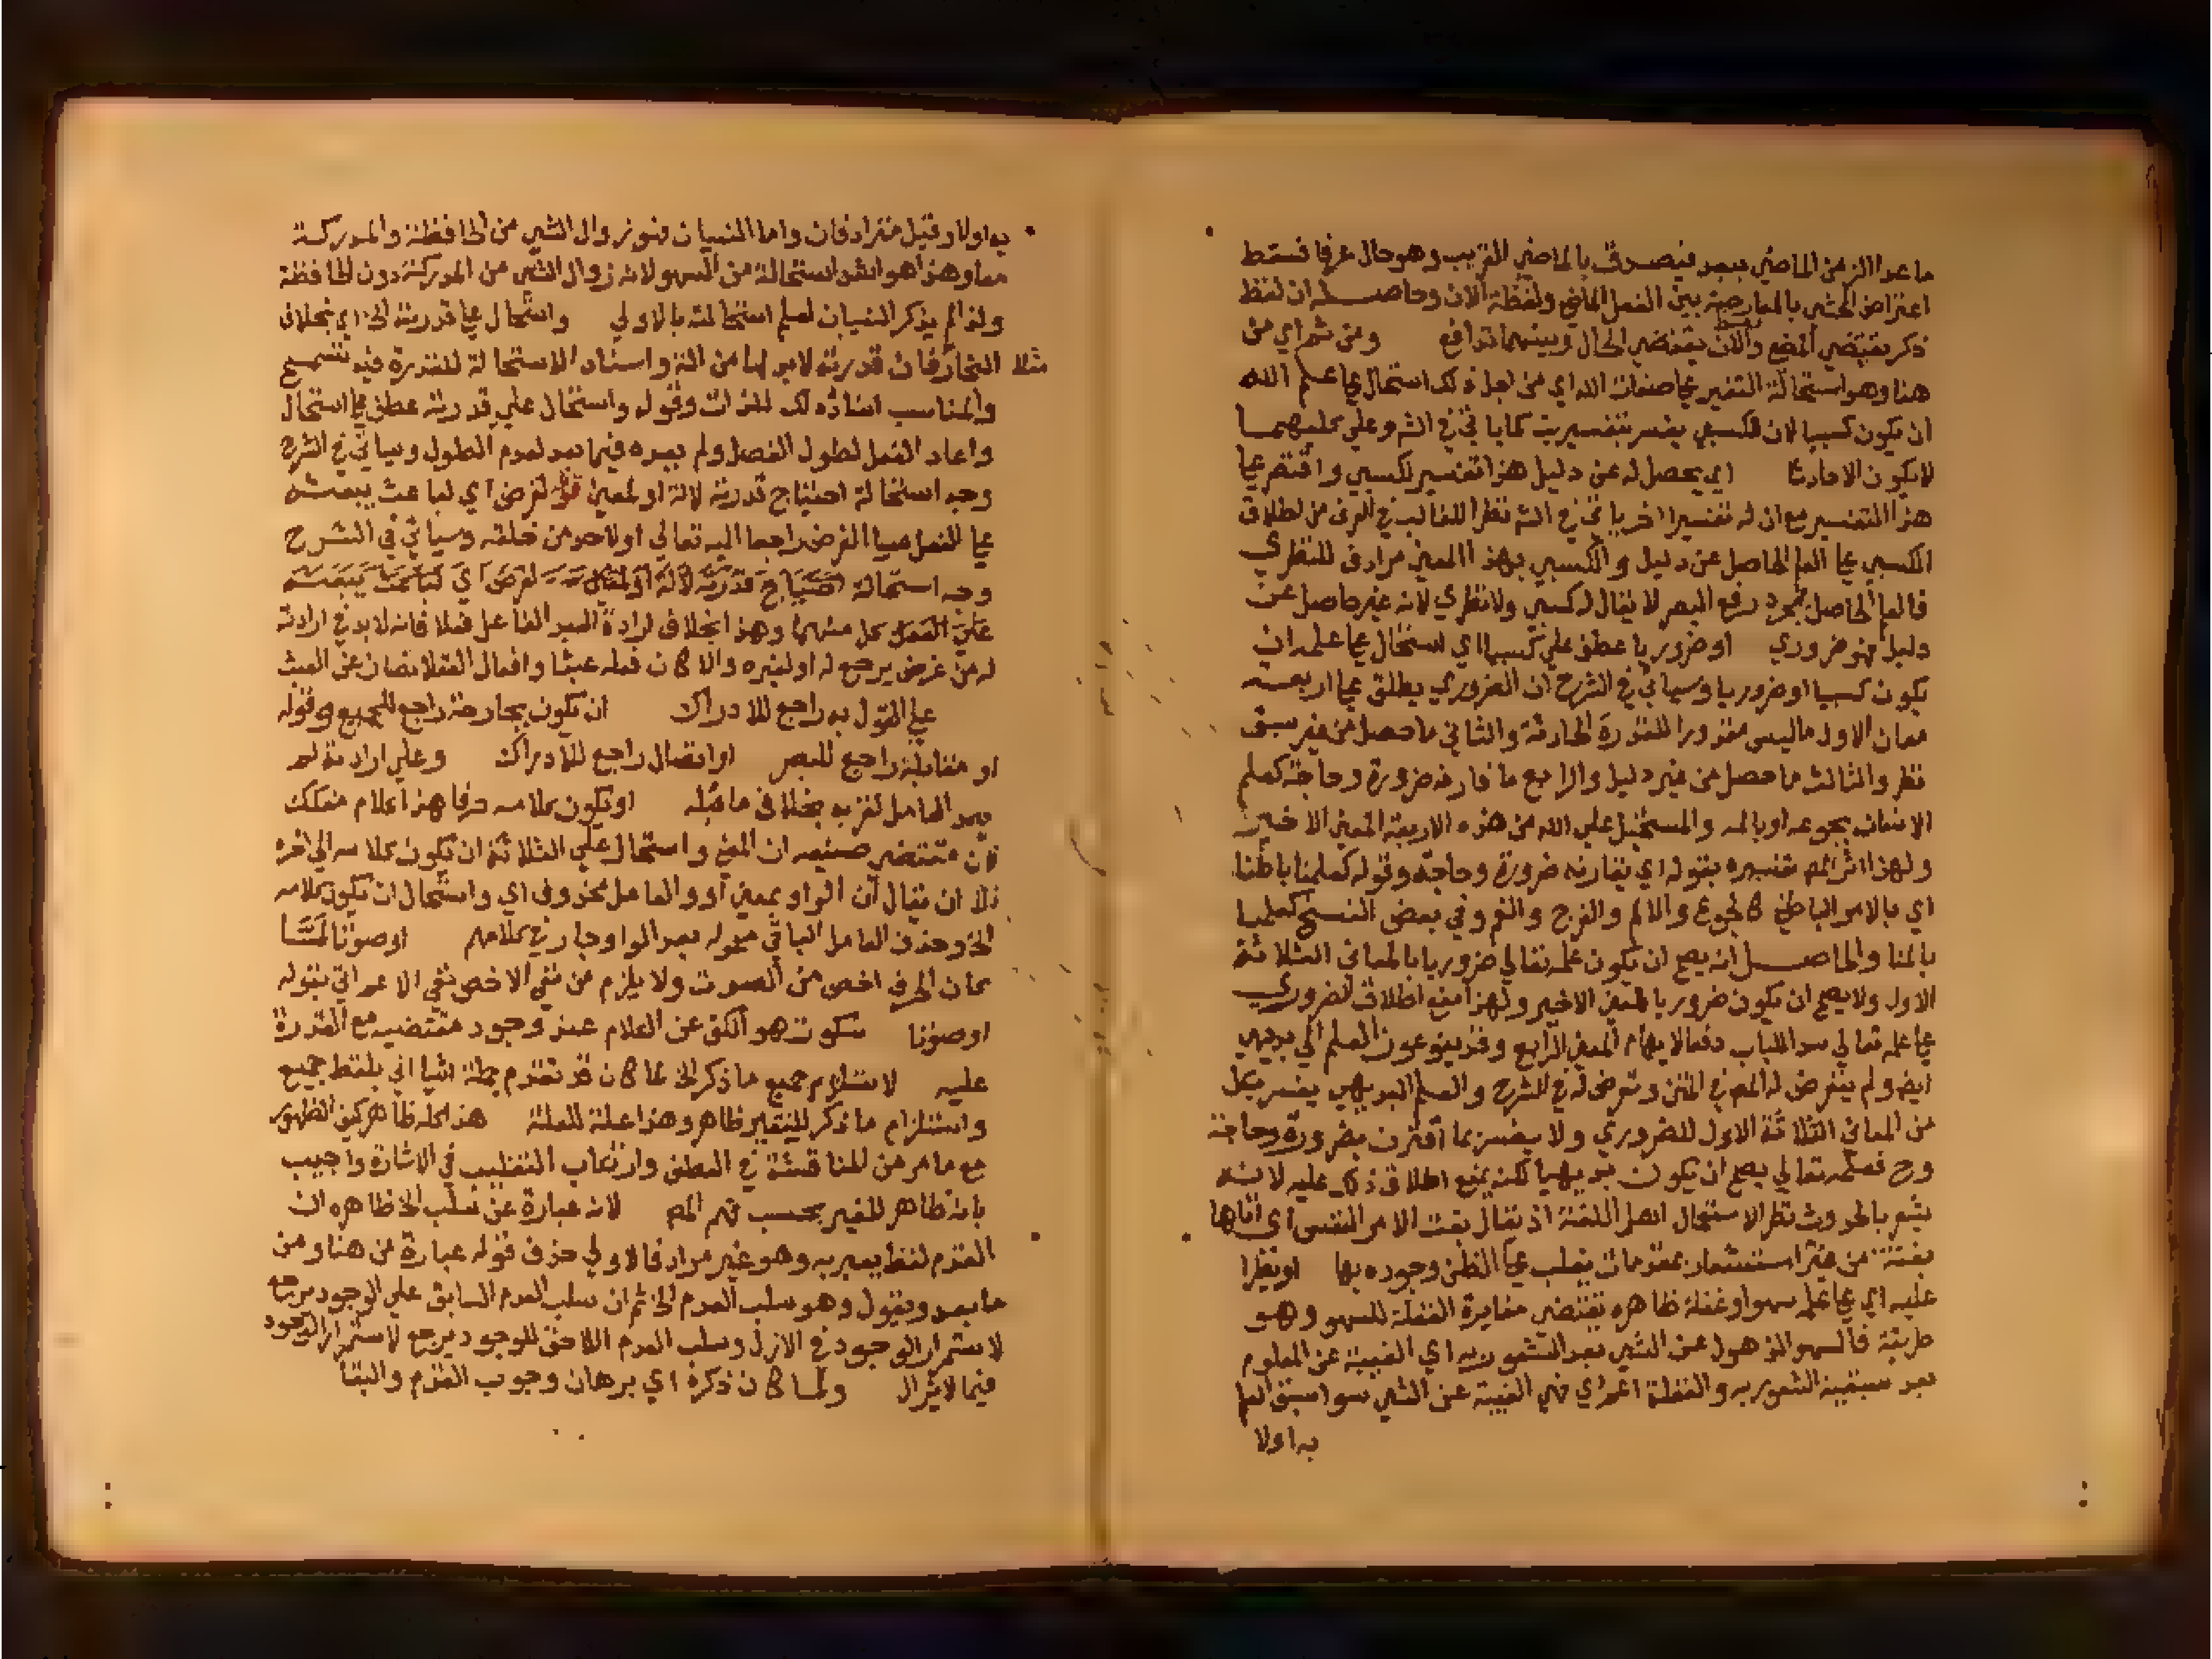 ما عدا الزمن الماضي ببعد فيصدق بالماضي القريب وهو حال عرفا فسقط
اعتراض المحشي بالمعارضة بين الفعل الماضي ولفظة الآن وحاصله ان لفظ
ذكر يقتضي المضي والآن يقتضي الحال وبينهما تدافع ومن ثم اي من
هنا وهو استحالة التغير علي صفات الله اي من اجل ذلك استحال علي علم الله
ان يكون كسبيا لان الكسبي يفسر بتفسيرين كما ياتي في الشر وعلي كليهما
لا يكون الا حادثا اي يحصل له عن دليل هذا تفسير لكسبي واقتصر علي
هذا التفسير مع ان له تفسيرا اخر ياتي في الشر نظرا للغالب في العرف من اطلاق
الكسبي علي العلم الحاصل عن دليل والكسبي بهذا المعني مرادف للنظري
فالعلم الحاصل بمجرد رفع البصر لا يقال له كسبي ولا نظري لانه غير حاصل عن
دليل فهو ضروري او ضروريا عطف علي كسبيا اي استحال علي علمه ان
يكون كسبيا او ضروريا وسياتي في الشرح ان الضروري يطلق علي اربعة
معان الاول ما ليس مقدورا للقدرة الحادثة والثاني ما حصل من غير سبق
نظر والثالث ما حصل من غير دليل والرابع ما قارنه ضرورة وحاجة كعلم
الانسان بجوعه او بالمه والمستحيل علي الله من هذه الاربعة المعني الاخير
ولهذا اثر المص تفسيره بقوله اي يقارنه ضرورة وحاجة وقوله كعلمنا باطنا
اي بالامر الباطني كالجوع والالم والفرح والغم وفي بعض النسخ كعلمنا
بالمنا والحاصل انه يصح ان يكون علمه تعالي ضروريا بالمعاني الثلاثة
الاول ولا يصح ان يكون ضروريا بالمعني الاخير ولهذا امتنع اطلاق الضروري
علي علمه تعالي سد الباب دفعا لايهام المعني الرابع وقد يتوعون العلم الي بديهي
ايضا ولم يتعرض له المص في المتن وتعرض له في الشرح والعلم البديهي يفسر بكل
من المعاني الثلاثة الاول للضروري ولا يفسر بما اقترن بضرورة وحاجة
وح فعلمه تعالي يصح ان يكون بديهيا لكنه يمنع اطلاق ذلك عليه لانه
يشعر بالحدوث نظرا لاستعمال اهل اللغة اذ يقال بغت الامر النفس اي اتاها
بغتة من غير استشعار بمقدمات يغلب علي الظن وجوده بها او يطرا
عليه اي علي علمه سهو او غفلة ظاهره يقتضي مغايرة الغفلة للسهو وهو
طريقة فالسهو الذهول عن الشي بعد الشعور به اي الغيبة عن المعلوم
بعد سبقية الشعور به والغفلة اعم اي فهي الغيبة عن الشي سوا سبق العلم
به اولا
به اولا وقيل مترادفان واما النسيان فهو زوال الشي من الحافظة والمدركة
معا وهذا هو اشد استحالة من السهو لانه زوال الشي من المدركة دون الحافظة
ولذا لم يذكر النسيان لعلم استحالته بالاولي واستحال علي قدرته الخ اي بخلاف
مثلا النجار فان قدرته لا بد لها من الة واسناد الاستحالة للقدرة فيه تسمح
والمناسب اسناد ذلك للذات وقوله واستحال علي قدرته عطف علي استحال
واعاد الفعل لطول الفصل ولم يعده فيما بعد لعدم الطول وسياتي في الشرح
وجه استحالة احتياج قدرته لالة او لمعين قوله لغرض اي لباعث يبعثه
علي الفعل سيا الغرض راجعا اليه تعالي او لاحد من خلقه وسياتي في الشرح
وجه استحالة احتياج قدرته لالة او لمعين لغرض اي لباعث يبعثه
علي الفعل كل منهما وهذا بخلاف ارادة العبد الفاعل فعلا فانه لا بد في ارادته
له من غرض يرجع له او لغيره والا كان فعله عبثا وافعال العقلا تصان عن العبث
علي القول به راجع للادراك ان يكون بجارحة راجع للجميع وقوله
او مقابلة راجع للبصر او اتصال راجع للادراك وعلي ارادته لم
يعد العامل لقربه بخلاف ما قبله او يكون كلامه حرفا هذا كلام مفكك
لان مقتضي صنيعه ان المعني واستحال علي الثلاثة ان يكون كلامه الي اخره
فلا ان يقال ان الواو بمعني او والعامل محذوف اي واستحال ان يكون كلامه
الخ وحذف العامل الباقي معموله بعد الواو جار في كلامهم او صوتا لما
كان الحرف اخص من الصوت ولا يلزم من نفي الاخص نفي الاعم اتي بقوله
او صوتا سكوت هو الكف عن الكلام عند وجود مقتضيه مع القدرة
عليه لاستلزام جميع ما ذكر الخ لما كان قد تقدم جملة اشيا اتي بلفظ جميع
واستلزام ما ذكر للتغير ظاهر وهذا علة للعلة هذا كله ظاهر كيف الظهور
مع ما مر من المناقشة في العطف وارتكاب التغليب في الاشارة واجيب
بانه ظاهر للغير بحسب فهم المص لانه عبارة عن سلب الخ ظاهره ان
القدم لفظ يعبر به وهو غير مراد فالاولي حذف قوله عبارة من هنا ومن
ما بعد ويقول وهو سلب العدم الخ ثم ان سلب العدم السابق علي الوجود يرجع
لاستمرار الوجود في الازل وسلب العدم اللاحق للوجود يرجع لاستمرار الوجود
فيما لا يزال ولما كان ذكره اي برهان وجوب القدم والبقا